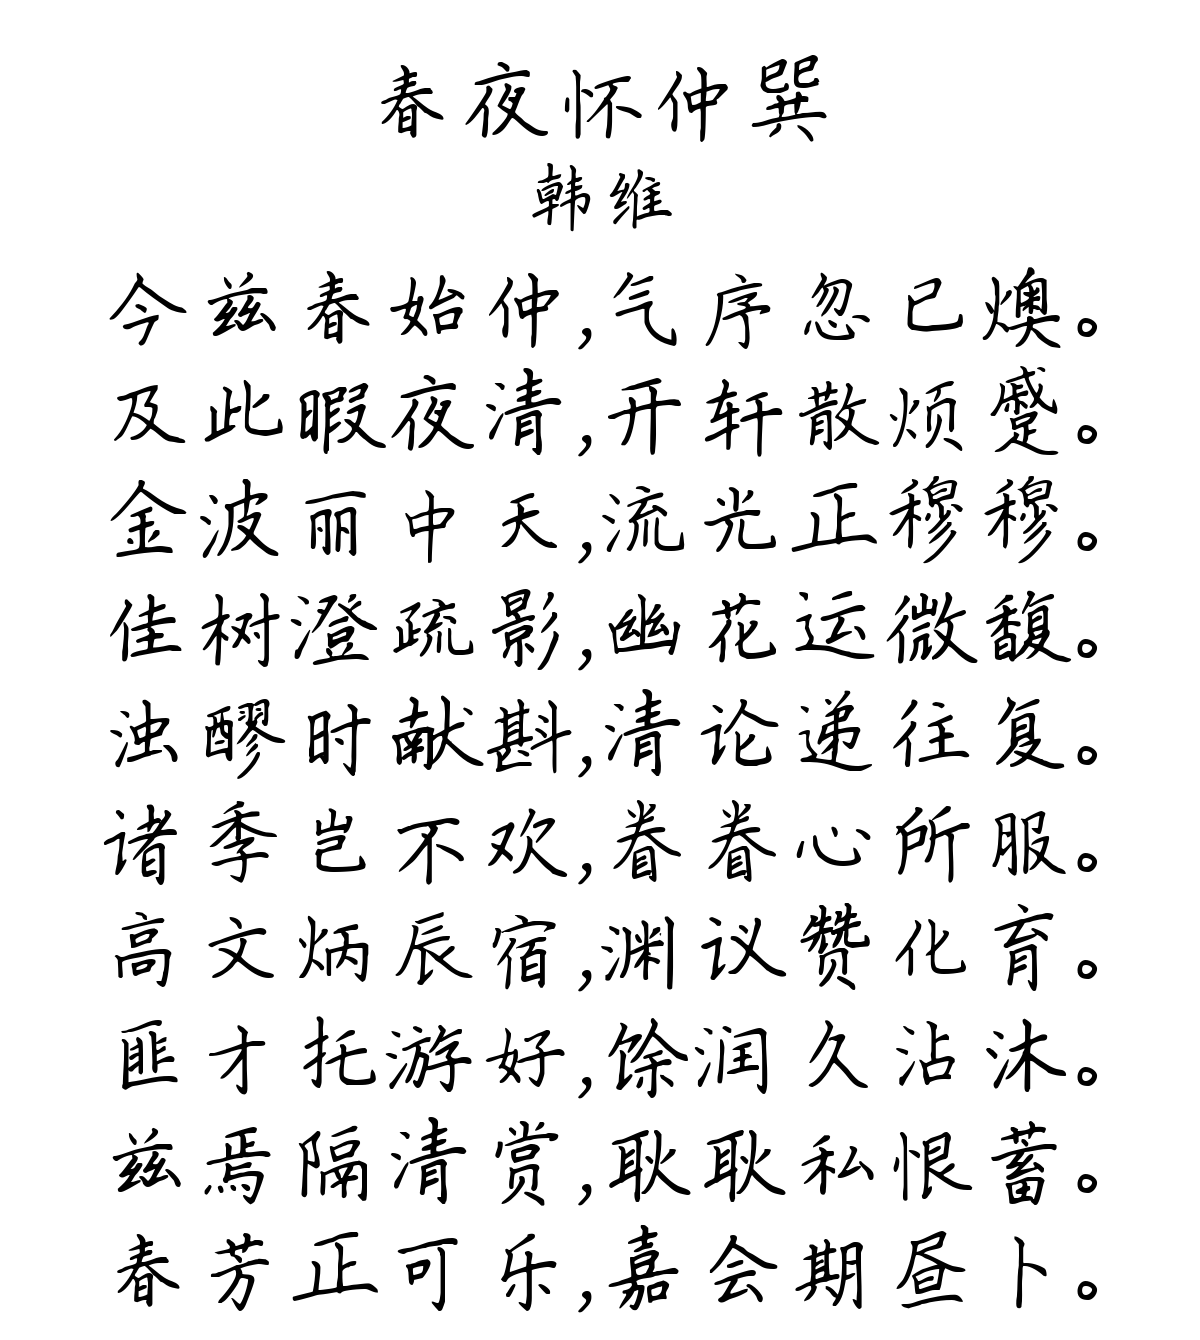 春夜怀仲巽
韩维
今兹春始仲,气序忽已燠。
及此暇夜清,开轩散烦蹙。
金波丽中天,流光正穆穆。
佳树澄疏影,幽花运微馥。
浊醪时献斟,清论递往复。
诸季岂不欢,眷眷心所服。
高文炳辰宿,渊议赞化育。
匪才托游好,馀润久沾沐。
兹焉隔清赏,耿耿私恨蓄。
春芳正可乐,嘉会期昼卜。